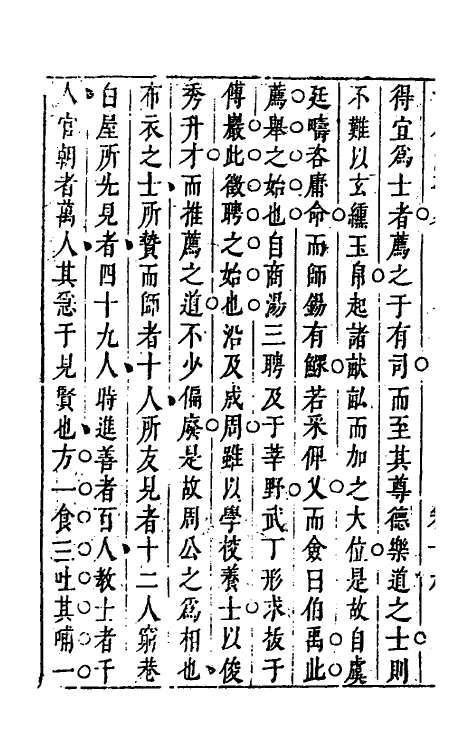 得宜爲士者薦之于有司而至其尊德樂道之士則
不難以玄纁玉帛起諸畎畝而加之大位是故自虞
廷疇咨庸命而師錫有鰥若采俾乂而僉曰伯禹此
薦舉之始也自商湯三聘及于莘野武丁形求扳于
傅巖此徵聘之始也沿及成周雖以學校養士以俊
秀升才而推薦之道不少偏廢是故周公之爲相也
布衣之士所贄而師者十人所友見者十二人窮巷
白屋所先見者四十九人時進善者百人教士者千
人官朝者萬人其急于見賢也方一食三吐其哺一